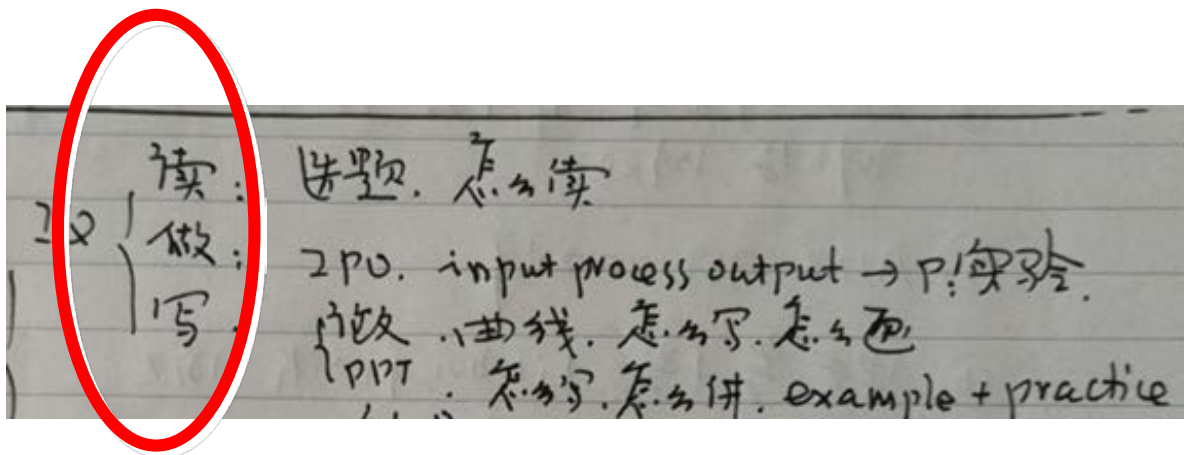 读: 选题. 怎么读
做: IPO. input process output → P:实验.
写. 曲线. 怎么写. 怎么画
PPT : 怎么写. 怎么讲. example + practice